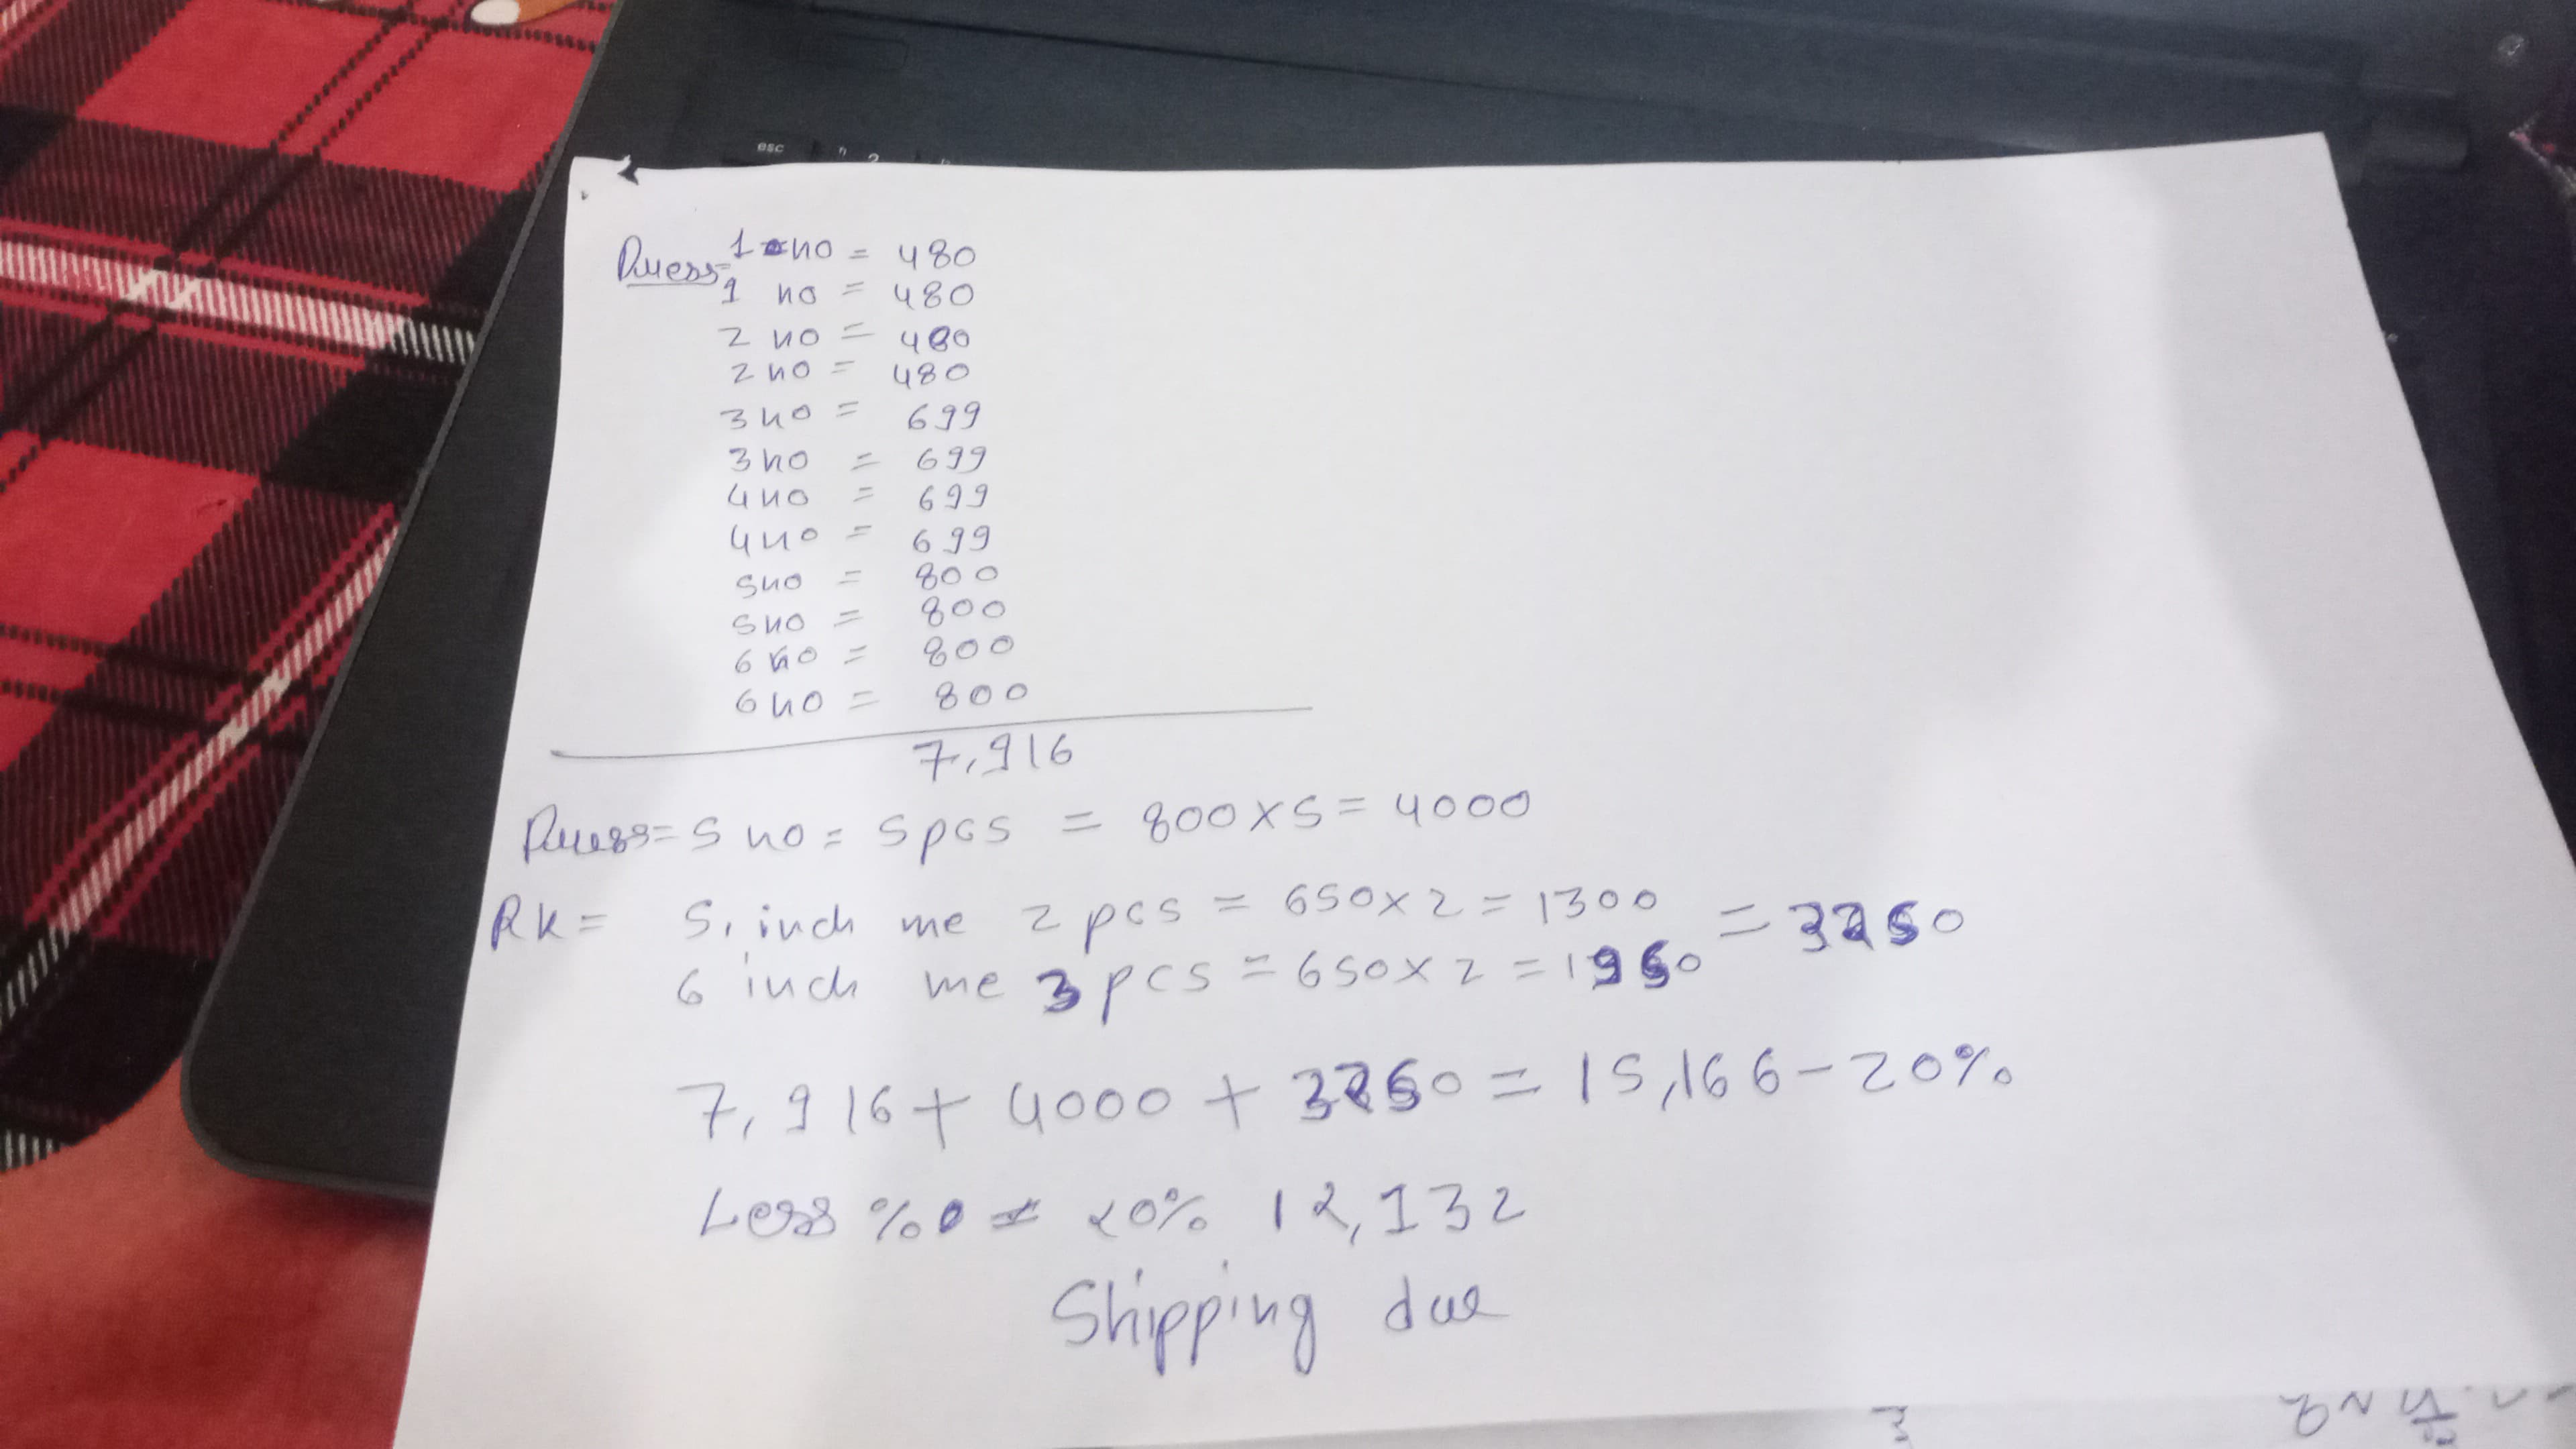 esc
Dress = 1 no = 480
1 no = 480
2 no = 480
2 no = 480
3 no = 699
3 no = 699
4 no = 699
4 no = 699
5 no = 800
5 no = 800
6 no = 800
6 no = 800
7,916
Dress = 5 no = 5 pcs = 800 x 5 = 4000
RK = 5, inch me 2 pcs = 650 x 2 = 1300
6 inch me 3 pcs = 650 x 2 = 1950 = 3250
7,916 + 4000 + 3250 = 15,166 - 20%
Less % = 20% 12,132
Shipping due